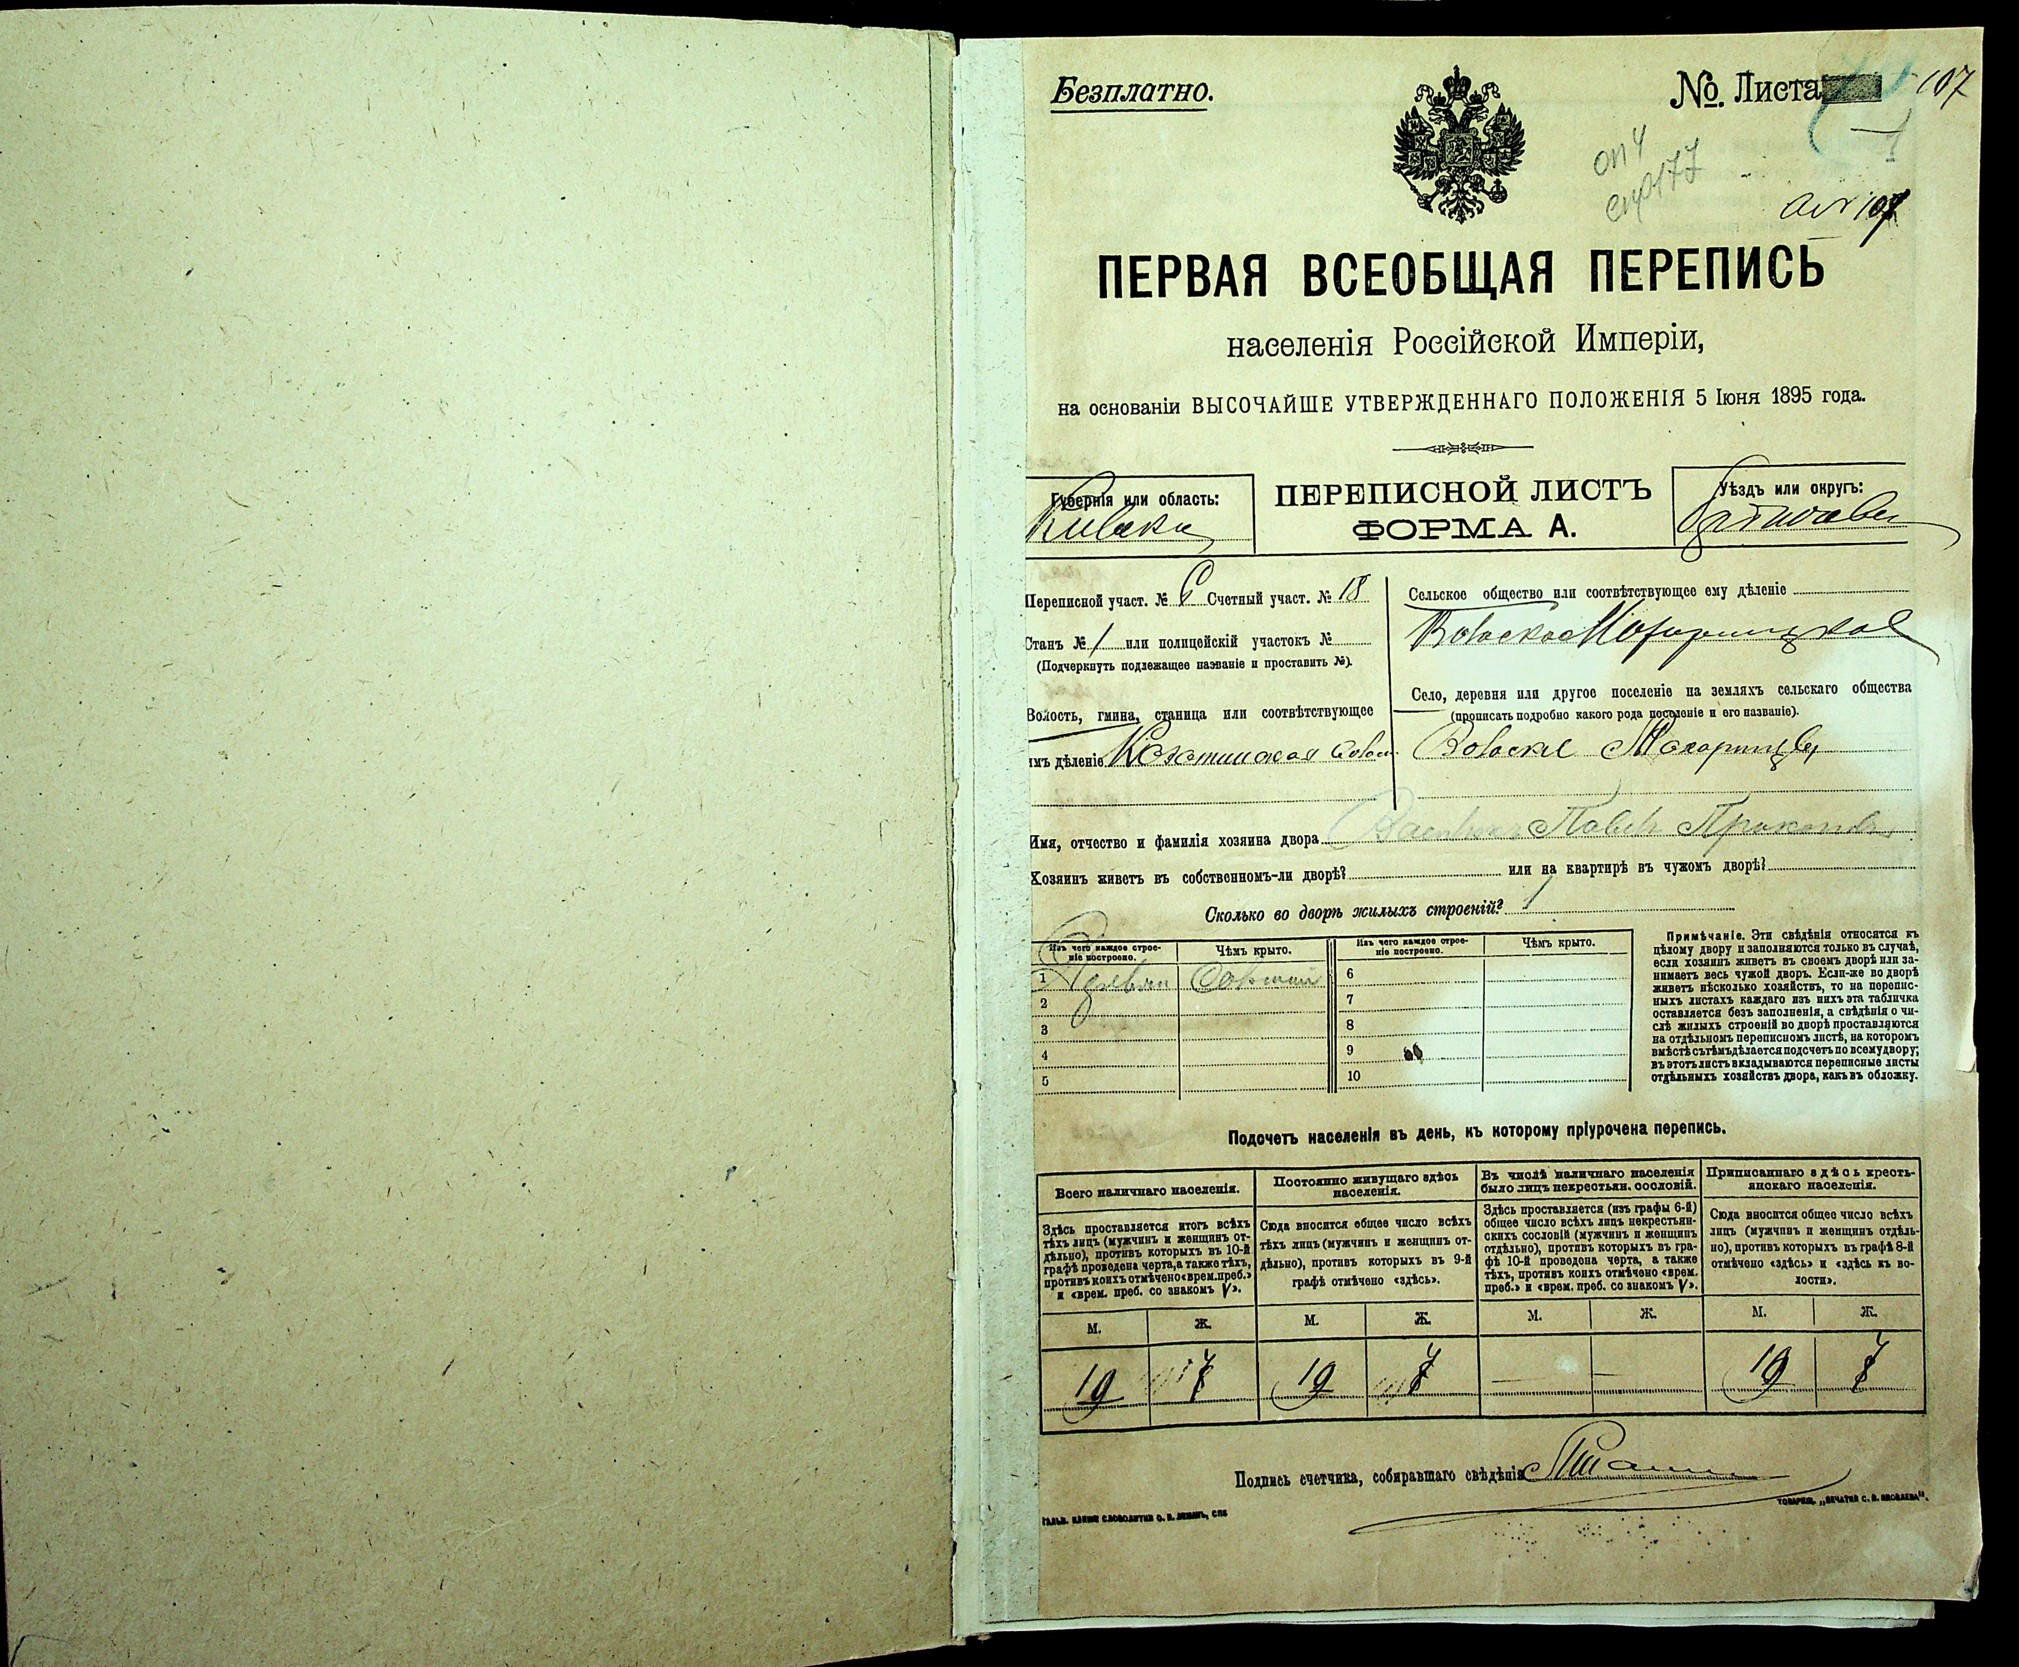 Безплатно.
№. Листа 107
оп 4
спр 177
107
ПЕРВАЯ ВСЕОБЩАЯ ПЕРЕПИСЬ
населенія Россійской Имперіи,
на основаніи ВЫСОЧАЙШЕ УТВЕРЖДЕННАГО ПОЛОЖЕНІЯ 5 Іюня 1895 года.
Губернія или область:
ПЕРЕПИСНОЙ ЛИСТЪ
ФОРМА А.
Уѣздъ или округъ:
Переписной участ. № 6 Счетный участ. № 18
Станъ № 1 или полицейскій участокъ №
(Подчеркнуть подлежащее названіе и проставить №).
Волость, гмина, станица или соотвѣтствующее
имъ дѣленіе
Сельское общество или соотвѣтствующее ему дѣленіе
Село, деревня или другое поселеніе на земляхъ сельскаго общества
(прописать подробно какого рода поселеніе и его названіе).
Имя, отчество и фамилія хозяина двора
Хозяинъ живетъ въ собственномъ-ли дворѣ? или на квартирѣ въ чужомъ дворѣ?
Сколько во дворѣ жилыхъ строеній? 1
Изъ чего каждое строе-
ніе построено.
Чѣмъ крыто.
Изъ чего каждое строе-
ніе построено.
Чѣмъ крыто.
1
2
3
4
5
6
7
8
9
10
Примѣчаніе. Эти свѣдѣнія относятся къ
цѣлому двору и заполняются только въ случаѣ,
если хозяинъ живетъ въ своемъ дворѣ или за-
нимаетъ весь чужой дворъ. Если-же во дворѣ
живетъ нѣсколько хозяйствъ, то на перепис-
ныхъ листахъ каждаго изъ нихъ эта табличка
оставляется безъ заполненія, а свѣдѣнія о чи-
слѣ жилыхъ строеній во дворѣ проставляются
на отдѣльномъ переписномъ листѣ, на которомъ
вмѣстѣ съ тѣмъ дѣлается подсчетъ по всему двору;
въ этотъ листъ вкладываются переписные листы
отдѣльныхъ хозяйствъ двора, какъ въ обложку.
Подсчетъ населенія въ день, къ которому пріурочена перепись.
Всего наличнаго населенія.
Постоянно живущаго здѣсь
населенія.
Въ числѣ наличнаго населенія
было лицъ некрестьян. сословій.
Приписаннаго здѣсь кресть-
янскаго населенія.
Здѣсь проставляется итогъ всѣхъ
тѣхъ лицъ (мужчинъ и женщинъ от-
дѣльно), противъ которыхъ въ 10-й
графѣ проведена черта, а также тѣхъ,
противъ коихъ отмѣчено «врем. преб.»
и «врем. преб. со знакомъ V».
Сюда вносится общее число всѣхъ
тѣхъ лицъ (мужчинъ и женщинъ от-
дѣльно), противъ которыхъ въ 9-й
графѣ отмѣчено «здѣсь».
Здѣсь проставляется (изъ графы 6-й)
общее число всѣхъ лицъ некрестьян-
скихъ сословій (мужчинъ и женщинъ
отдѣльно), противъ которыхъ въ гра-
фѣ 10-й проведена черта, а также
тѣхъ, противъ коихъ отмѣчено «врем.
преб.» и «врем. преб. со знакомъ V».
Сюда вносится общее число всѣхъ
лицъ (мужчинъ и женщинъ отдѣль-
но), противъ которыхъ въ графѣ 8-й
отмѣчено «здѣсь» и «здѣсь къ во-
лости».
М. Ж. М. Ж. М. Ж. М. Ж.
19 7 19 7 — — 19 7
Подпись счетчика, собиравшаго свѣдѣнія
ТОВАРИЩ. „ПЕЧАТНЯ С. П. ЯКОВЛЕВА".